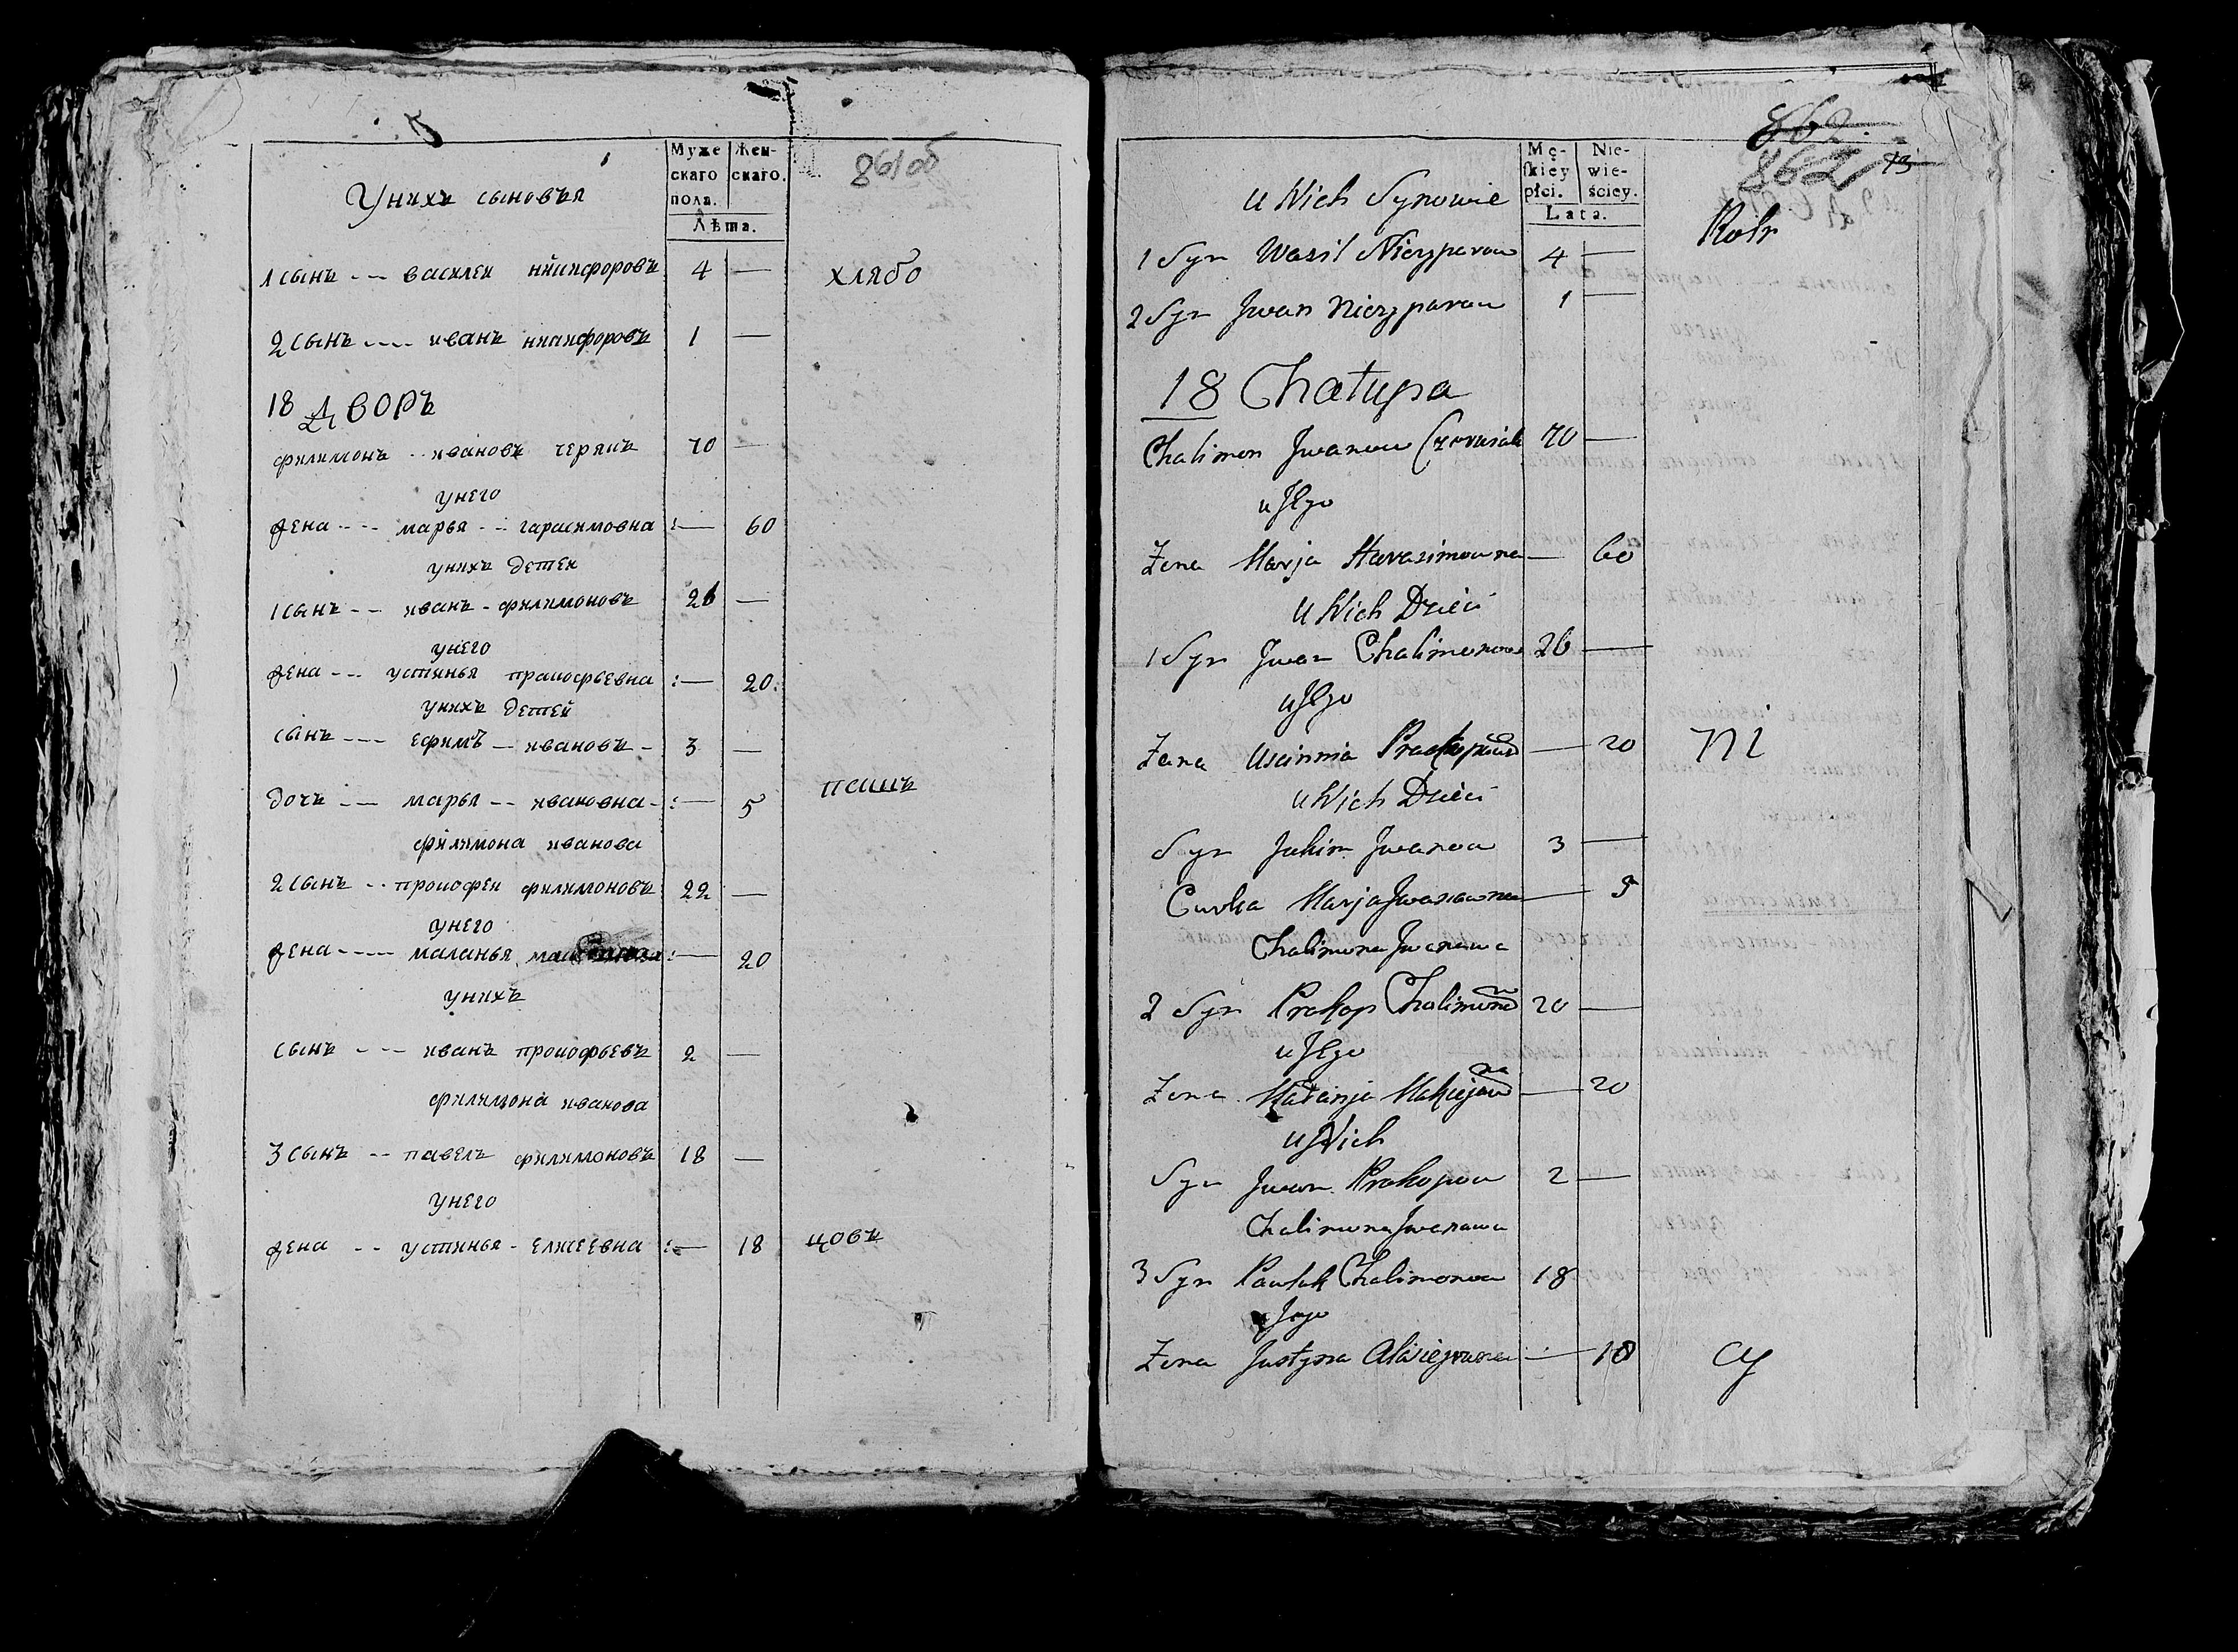 861об
Муже
скаго
пола.
Жен-
скаго.
Лѣта.
Унихъ сыновья
1 сынъ --- василеи никифоровъ 4 —
хлябо
2 сынъ ---- иванъ никифоровъ 1 —
18 дворъ
филимонъ -- ивановъ чернякъ 70 —
унего
жена ---- марья --- гарасимовна :— 60
унихъ детеи
1 сынъ --- иванъ - филимоновъ 26 —
унего
жена --- устинья прокофьевна :— 20:
унихъ детей
сынъ --- ефимъ -- ивановъ - 3 —
пашъ
дочь --- марья -- ивановна - :— 5
филимона иванова
2 сынъ -- прокофеи филимоновъ 22 —
унего
жена ---- маланья :— 20
унихъ
сынъ --- иванъ прокофьевъ 2 —
филимона иванова
3 сынъ -- павелъ филимоновъ 18 —
унего
жена -- устинья - елисеевна :— 18 цовъ
862
862 73
Mę-
skiey
płci.
Nie-
wie-
ściey.
Lata.
u Nich Synowie
Robr
1 Syn Wasil Niczyparow 4 —
2 Syn Jwan Niczyparow 1 —
18 Chałupa
Chalimon Jwanow 70 —
u Jego
Zena Marja Harasimowna — 60
u Nich Dzieci
1 Syn Jwan Chalimonow 26 —
u Jego
Zena Uscinnia Prokopowa — 20 ni
u Nich Dzieci
Syn Jachim Jwanow 3 —
Curka Marja Jwanowna — 5
Chalimona Jwanowa
2 Syn Prokop Chalimonow 20 —
u Jego
Zena Małanja Makiejowna — 20
u Nich
Syn Jwan Prokopow 2 —
Chalimona Jwanowa
3 Syn Pawluk Chalimonow 18
u Jego
Zena Justyna Alisiejowna — 18 cy